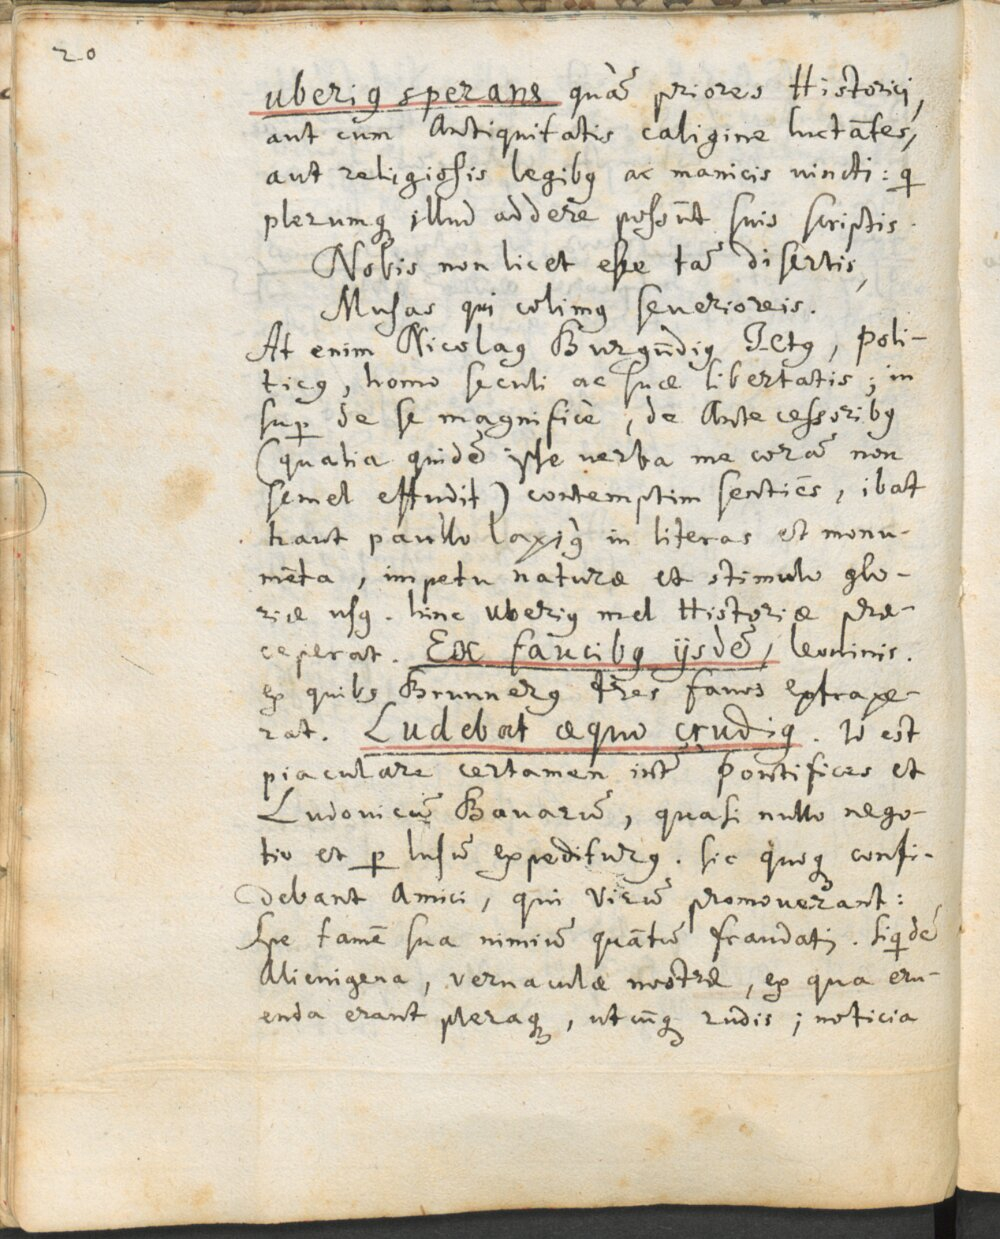 20
uberiꝰ sperans quā priores Historici,
aut cum Antiquitatis caligine luctātes,
aut religiosis legibꝰ ac manicis vincti: q
plerumq illud addere possūt suis scriptis.
Nobis non licet esse tā disertis,
Musas qui colimꝰ severioreis.
At enim Nicolaꝰ Burgūdiꝰ ICtꝰ, Poli-
ticꝰ, homo seculi ac suæ libertatis; in
sup de se magnificè, de Antecessoribꝰ
(qualia quidē ipse verba me corā non
semel effudit) contemptim sentiēs, ibat
haut paullo laxiꝰ in literas et monu-
mēta, impetu naturæ et stimulo glo-
riæ usꝰ. hinc uberiꝰ mel Historiæ præ-
ceperat. Ex faucibꝰ ijsdē, leoninis.
ex quibꝰ Brunnerꝰ tres favos extraxe-
rat. Ludebat æquo crudiꝰ. Id est
piaculare certamen int Pontifices et
Ludovicū Bavarū, quasi nullo nego-
tio et p lusū expediturꝰ. Sic quoq confi-
debant Amici, qui Virū promoverant:
Spe tamē sua nimiū quātū fraudati. Siqdē
Alienigena, vernaculæ nostræ, ex qua eru-
enda erant pleraq, utcūq rudis; noticia